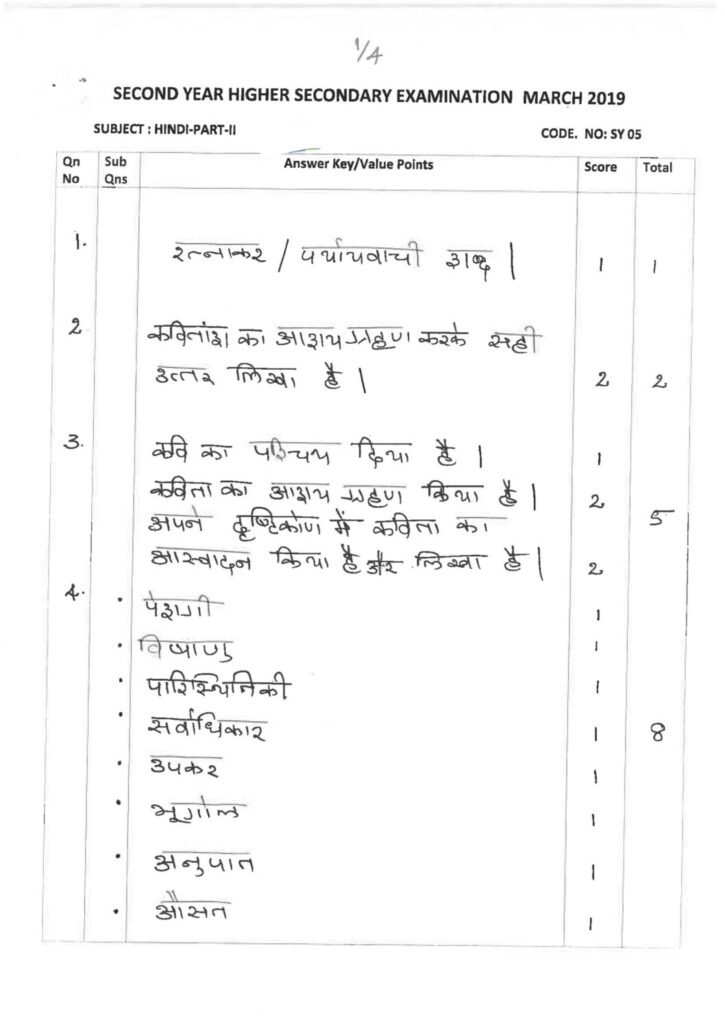 1/4
SECOND YEAR HIGHER SECONDARY EXAMINATION MARCH 2019
SUBJECT : HINDI-PART-II CODE. NO: SY 05
Qn No Sub Qns Answer Key/Value Points Score Total
1. रत्नाकर / पर्यायवाची शब्द | 1 1
2 कवितांश का आशय ग्रहण करके सही
उत्तर लिखा है | 2 2
3. कवि का परिचय दिया है | 1
कविता का आशय ग्रहण किया है | 2
अपने दृष्टिकोण में कविता का 5
आस्वादन किया है और लिखा है | 2
4. • पेशगी 1
• विषाणु 1
• पारिस्थितिकी 1
• सर्वाधिकार 1 8
• उपकर 1
• भूगोल 1
• अनुपात 1
• औसत 1